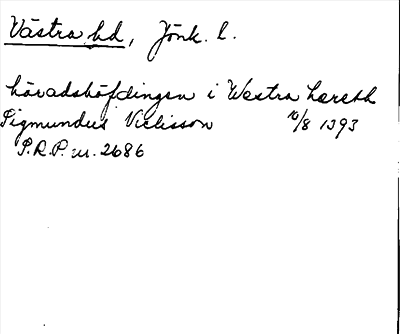 Västra hd, Jönk. l.
häradshöfdingen i Westra hæreth
Sigmundus Niclisson 10/8 1393
P.R.P. nr. 2686